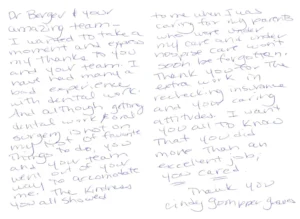 Dr Berger & your
amazing team -
I wanted to take a
moment and express
my thanks to you
and your team. I
have had many a
bad experience
with dental work.
And although getting
dental work & oral
surgery is not on
my list of favorite
things to do, you
and your team
went out of your
way to accomodate
me. The kindness
you all showed
to me when I was
caring for my parents
who were under
my care and under
hospice care won't
soon be forgotten.
Thank you for the
extra work in
rechecking insurance
and your caring
attitudes. I want
you all to know
that you did
more than an
excellent job,
you cared.
Thank you
Cindy